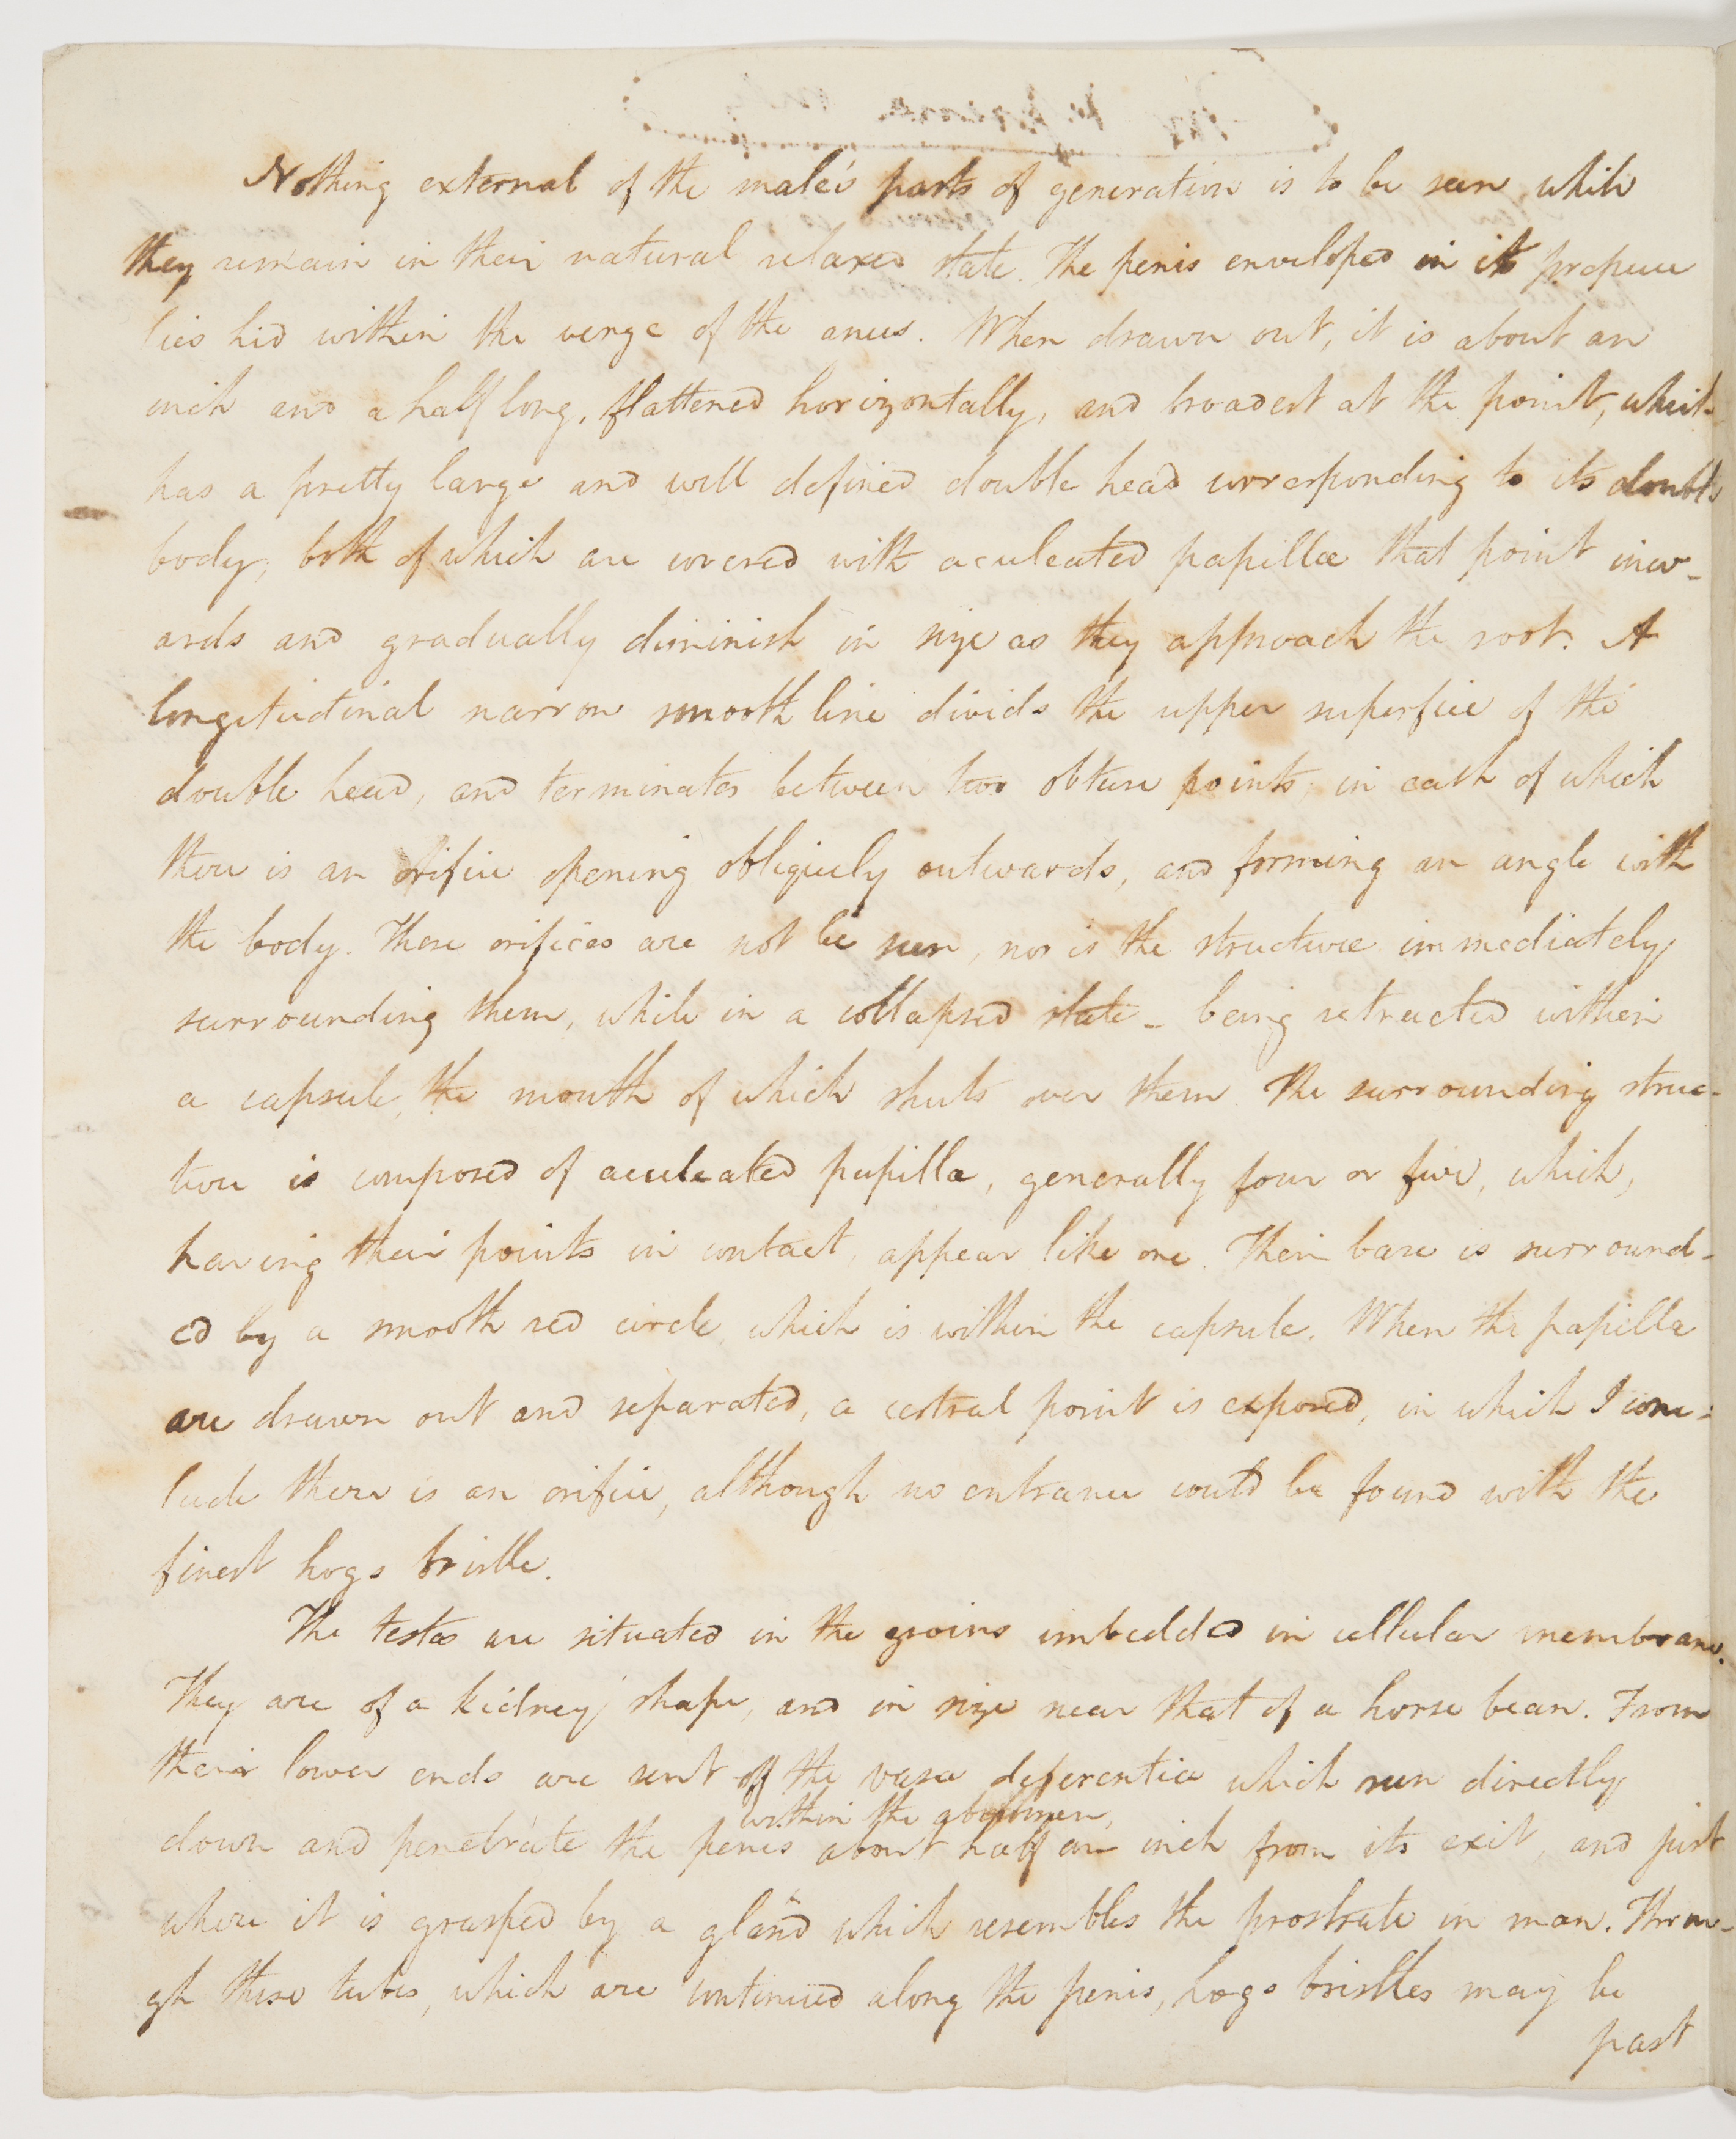 Nothing external of the male's parts of generation is to be seen while
they remain in their natural relaxed state. The penis enveloped in its prepuce
lies hid within the verge of the anus. When drawn out, it is about an
inch and a half long, flattened horizontally, and broadest at the point, which
has a pretty large and well defined double head corresponding to its double
body; both of which are covered with aculeated papillæ that point inw-
ards and gradually diminish in size as they approach the root. A
longitudinal narrow smooth line divids the upper superfice of the
double head, and terminates between two obtuse points; in each of which
there is an orifice opening obliquely outwards, and forming an angle with
the body. These orifices are not be seen, nor is the structure immediately
surrounding them, while in a collapsed state - being retracted within
a capsule, the mouth of which shuts over them. The surrounding struc-
ture is composed of aculeated papilla, generally four or five, which,
having their points in contact, appear like one. Their base is surround-
ed by a smooth red circle, which is within the capsule. When the papilla
are drawn out and separated, a central point is exposed, in which I conc-
lude there is an orifice, although no entrance could be found with the
finest hogs bristle.
The testes are situated in the groins imbedded in cellular membrane.
They are of a kidney shape, and in size near that of a horse bean. From
their lower ends are sent off the vasa deferentia which run directly
within the abdomen,
down and penetrate the penis about half an inch from its exit, and just
where it is grasped by a gland which resembles the prostrate in man. Throu-
gh these tubes, which are continued along the penis, hogs bristles may be
past